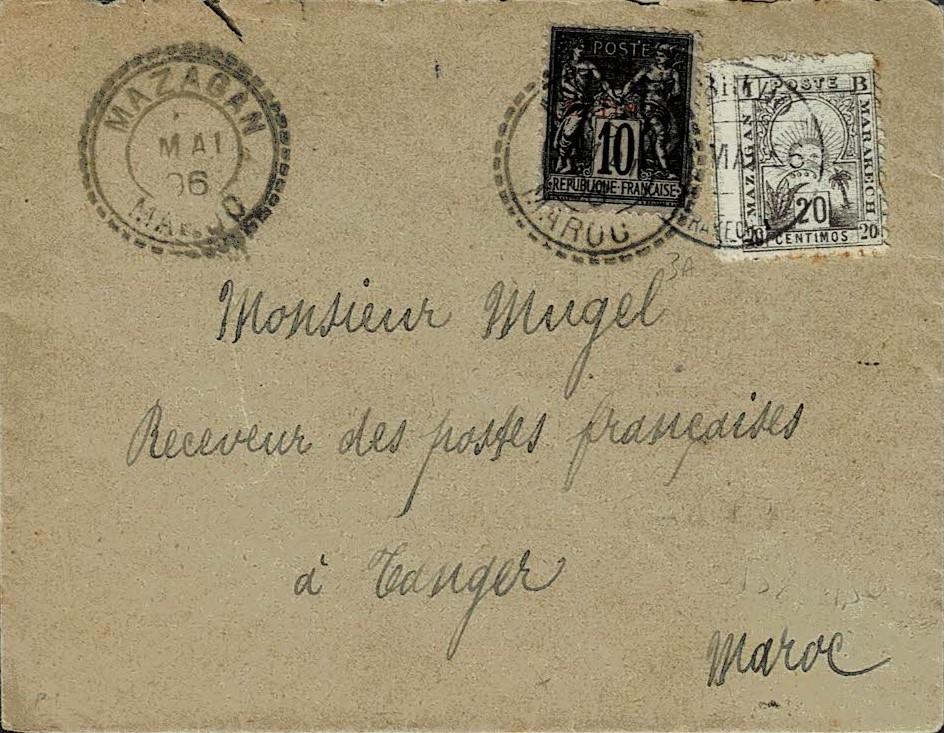 MAZAGAN
MAI
06
MAROC
POSTE
10
REPUBLIQUE FRANÇAISE
MAROC
POSTE B
MAZAGAN
MARAKECH
MA 6
20
20 CENTIMOS 20
3A
Monsieur Mugel
Receveur des postes françaises
à Tanger
Maroc